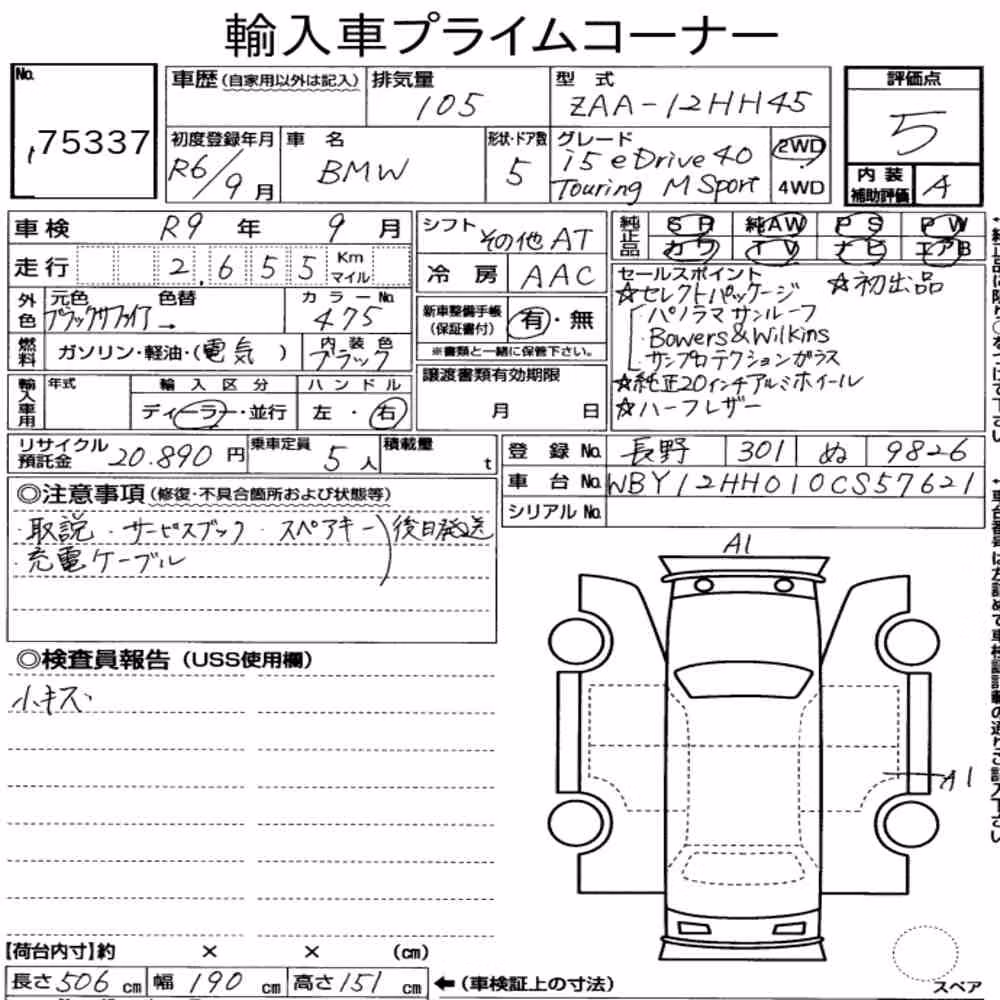 輸入車プライムコーナー
No.
75337
車歴(自家用以外は記入)
排気量
105
型 式
ZAA-12HH45
評価点
5
初度登録年月
R6/9月
車 名
BMW
形状・ドア数
5
グレード
i5 eDrive40
Touring M Sport
2WD
4WD
内 装
補助評価
A
車検 R9 年 9 月
走行 2,655 Km マイル
外色
元色 色替
ブラックサファイア→
カラーNo.
475
燃料
ガソリン・軽油・(電気)
内装色
ブラック
輸入車用
年式
輸入区分
ディーラー・並行
ハンドル
左・右
シフト その他AT
冷房 AAC
新車整備手帳
(保証書付)
有・無
※書類と一緒に保管下さい。
譲渡書類有効期限
月 日
純正品
SR 純AW PS PW
カワ TV ナビ エアB
セールスポイント
☆初出品
☆セレクトパッケージ
パノラマサンルーフ
Bowers&Wilkins
サンプロテクションガラス
☆純正20インチアルミホイール
☆ハーフレザー
リサイクル
預託金
20.890円
乗車定員
5人
積載量
t
登録No. 長野 301 ぬ 9826
車台No. WBY12HH010CS57621
シリアルNo.
◎注意事項(修復・不具合箇所および状態等)
・取説 ・サービスブック ・スペアキー)後日発送
・充電ケーブル
◎検査員報告(USS使用欄)
小キズ
A1
A1
【荷台内寸】約 × × (cm)
長さ506cm 幅190cm 高さ151cm
←(車検証上の寸法)
スペア